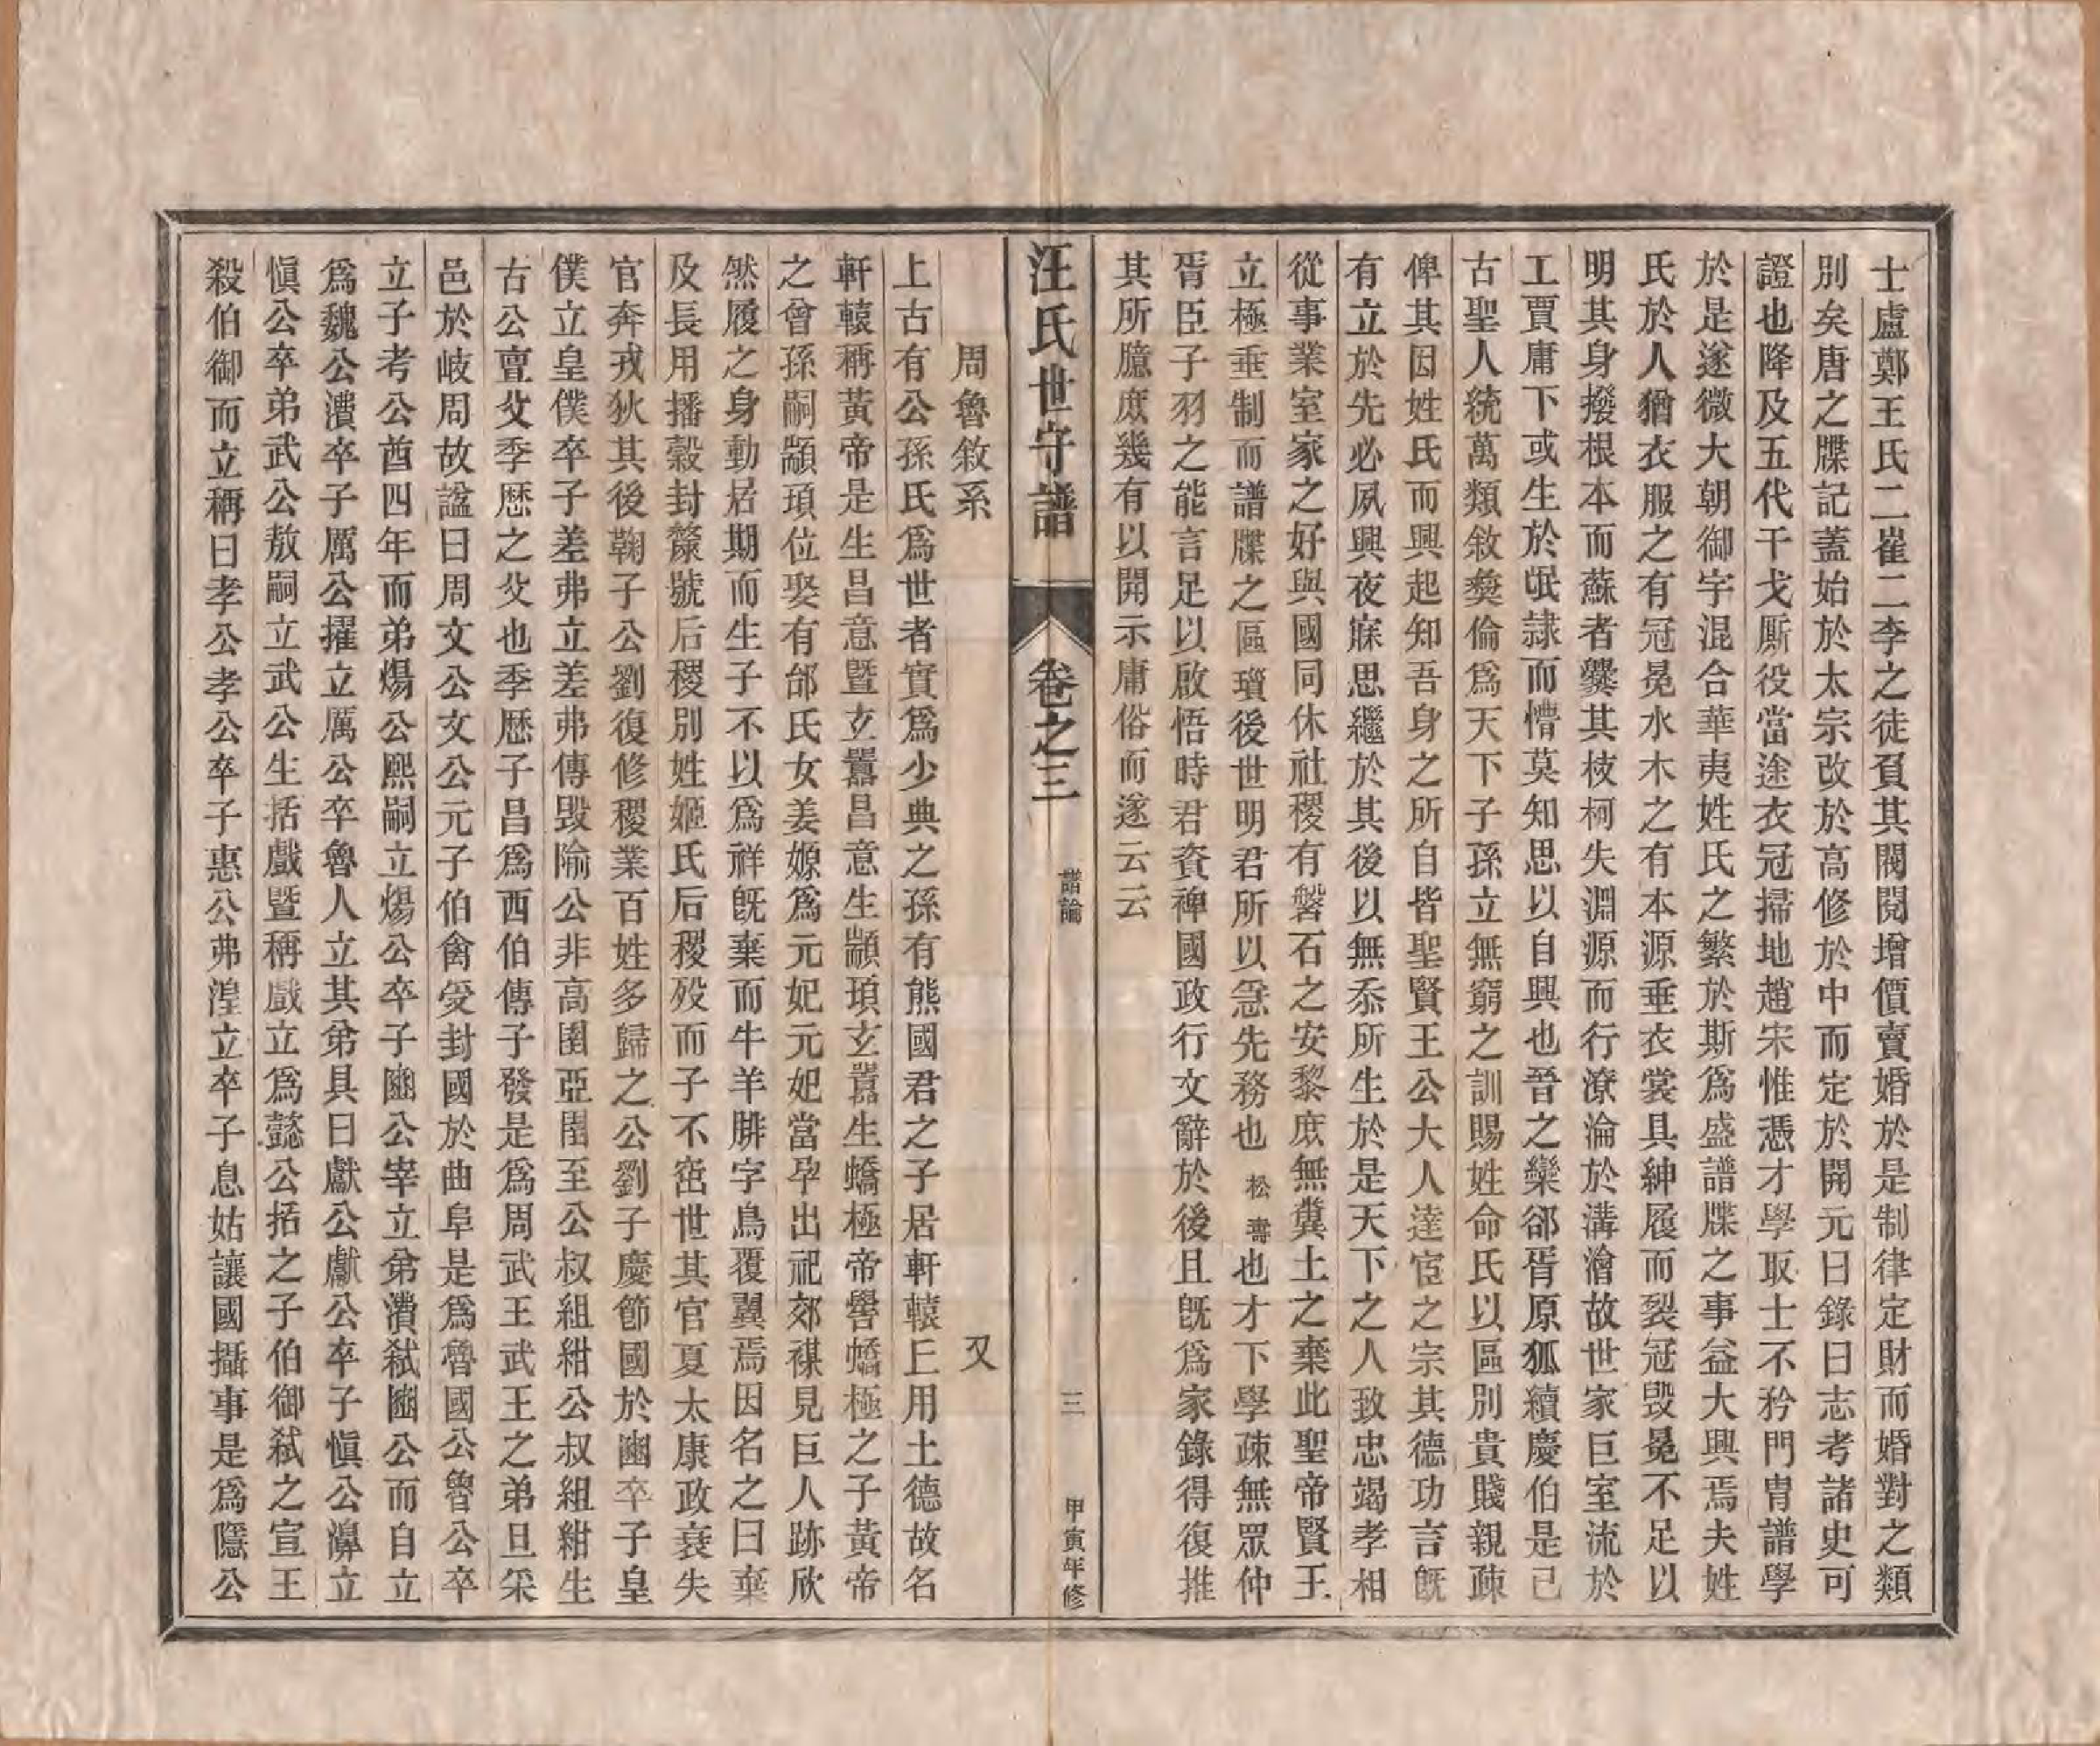 士盧鄭王氏二崔二李之徒頁其閥閱增價賣婚於是制律定財而婚對之類
別矣唐之牒記蓋始於太宗改於高修於中而定於開元曰錄曰志考諸史可
證也降及五代干戈厮役當途衣冠掃地趙宋惟憑才學取士不矜門冑譜學
於是遂微大朝御宇混合華夷姓氏之繁於斯爲盛譜牒之事益大興焉夫姓
氏於人猶衣服之有冠冕水木之有本源垂衣裳具紳履而裂冠毀冕不足以
明其身撥根本而蘇者爨其枝柯失淵源而行潦淪於溝澮故世家巨室流於
工賈庸下或生於氓隷而懵莫知思以自興也晉之欒郤胥原狐續慶伯是已
古聖人統萬類敘彝倫爲天下子孫立無窮之訓賜姓命氏以區別貴賤親疎
俾其因姓氏而興起知吾身之所自皆聖賢王公大人達宦之宗其德功言旣
有立於先必夙興夜寐思繼於其後以無忝所生於是天下之人致忠竭孝相
從事業室家之好與國同休社稷有磐石之安黎庶無糞土之棄此聖帝賢王
立極垂制而譜牒之區瓆後世明君所以急先務也松壽也才下學疎無眾仲
胥臣子羽之能言足以啟悟時君資裨國政行文辭於後且旣爲家錄得復推
其所臆庶幾有以開示庸俗而遂云云
汪氏世守譜 卷之三 譜論 三 甲寅年修
周魯敘系 又
上古有公孫氏爲世者實爲少典之孫有熊國君之子居軒轅丘用土德故名
軒轅稱黃帝是生昌意暨玄囂昌意生顓頊玄囂生蟜極帝嚳蟜極之子黃帝
之曾孫嗣顓頊位娶有邰氏女姜嫄爲元妃元妃當孕出祀郊禖見巨人跡欣
然履之身動居期而生子不以爲祥旣棄而牛羊腓字鳥覆翼焉因名之曰棄
及長用播穀封漦號后稷別姓姬氏后稷歿而子不窋世其官夏太康政衰失
官奔戎狄其後鞠子公劉復修稷業百姓多歸之公劉子慶節國於豳卒子皇
僕立皇僕卒子差弗立差弗傳毀隃公非高圉亞圉至公叔組紺公叔組紺生
古公亶父季歷之父也季歷子昌爲西伯傳子發是爲周武王武王之弟旦采
邑於岐周故諡曰周文公文公元子伯禽受封國於曲阜是爲魯國公魯公卒
立子考公酋四年而弟煬公熙嗣立煬公卒子豳公宰立弟㵒弒豳公而自立
爲魏公㵒卒子厲公擢立厲公卒魯人立其弟具曰獻公獻公卒子愼公濞立
愼公卒弟武公敖嗣立武公生括戲暨稱戲立爲懿公括之子伯御弒之宣王
殺伯御而立稱曰孝公孝公卒子惠公弗湟立卒子息姑讓國攝事是爲隱公